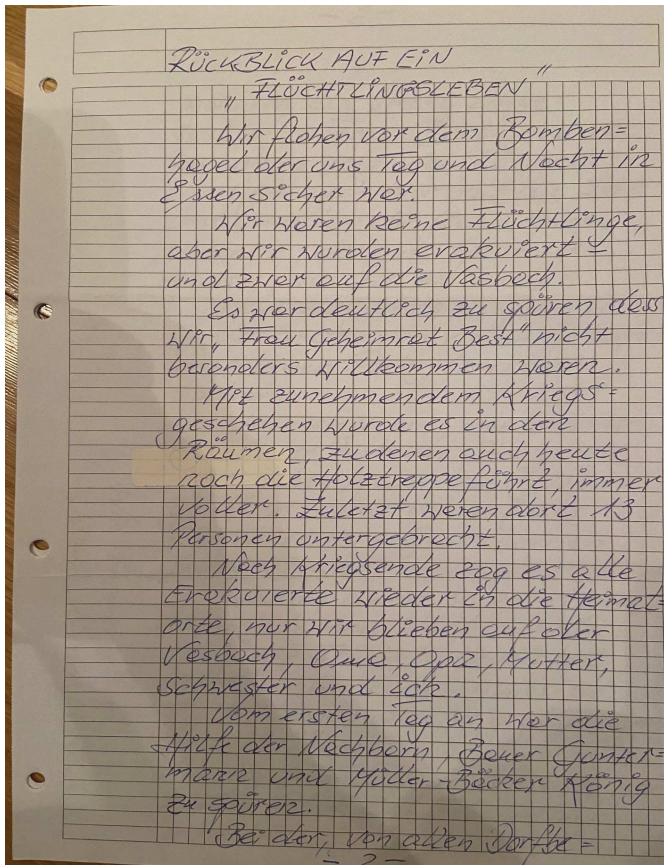 RÜCKBLICK AUF EIN
„FLÜCHTLINGSLEBEN“
Wir flohen vor dem Bomben=
hagel der uns Tag und Nacht in
Essen sicher war.
Wir waren keine Flüchtlinge,
aber wir wurden evakuiert –
und zwar auf die Vasbach.
Es war deutlich zu spüren dass
wir „Frau Geheimrat Best“ nicht
besonders willkommen waren.
Mit zunehmendem Kriegs=
geschehen wurde es in den
Räumen, zu denen auch heute
noch die Holztreppe führt, immer
voller. Zuletzt waren dort 13
Personen untergebracht.
Nach Kriegsende zog es alle
Evakuierte wieder in die Heimat=
orte, nur wir blieben auf der
Vasbach, Oma, Opa, Mutter,
Schwester und ich.
Vom ersten Tag an war die
Hilfe der Nachbarn, Bauer Gunter=
mann und Müller-Bäcker König
zu spüren.
Bei der, von allen Dorfbe=
– 2 –